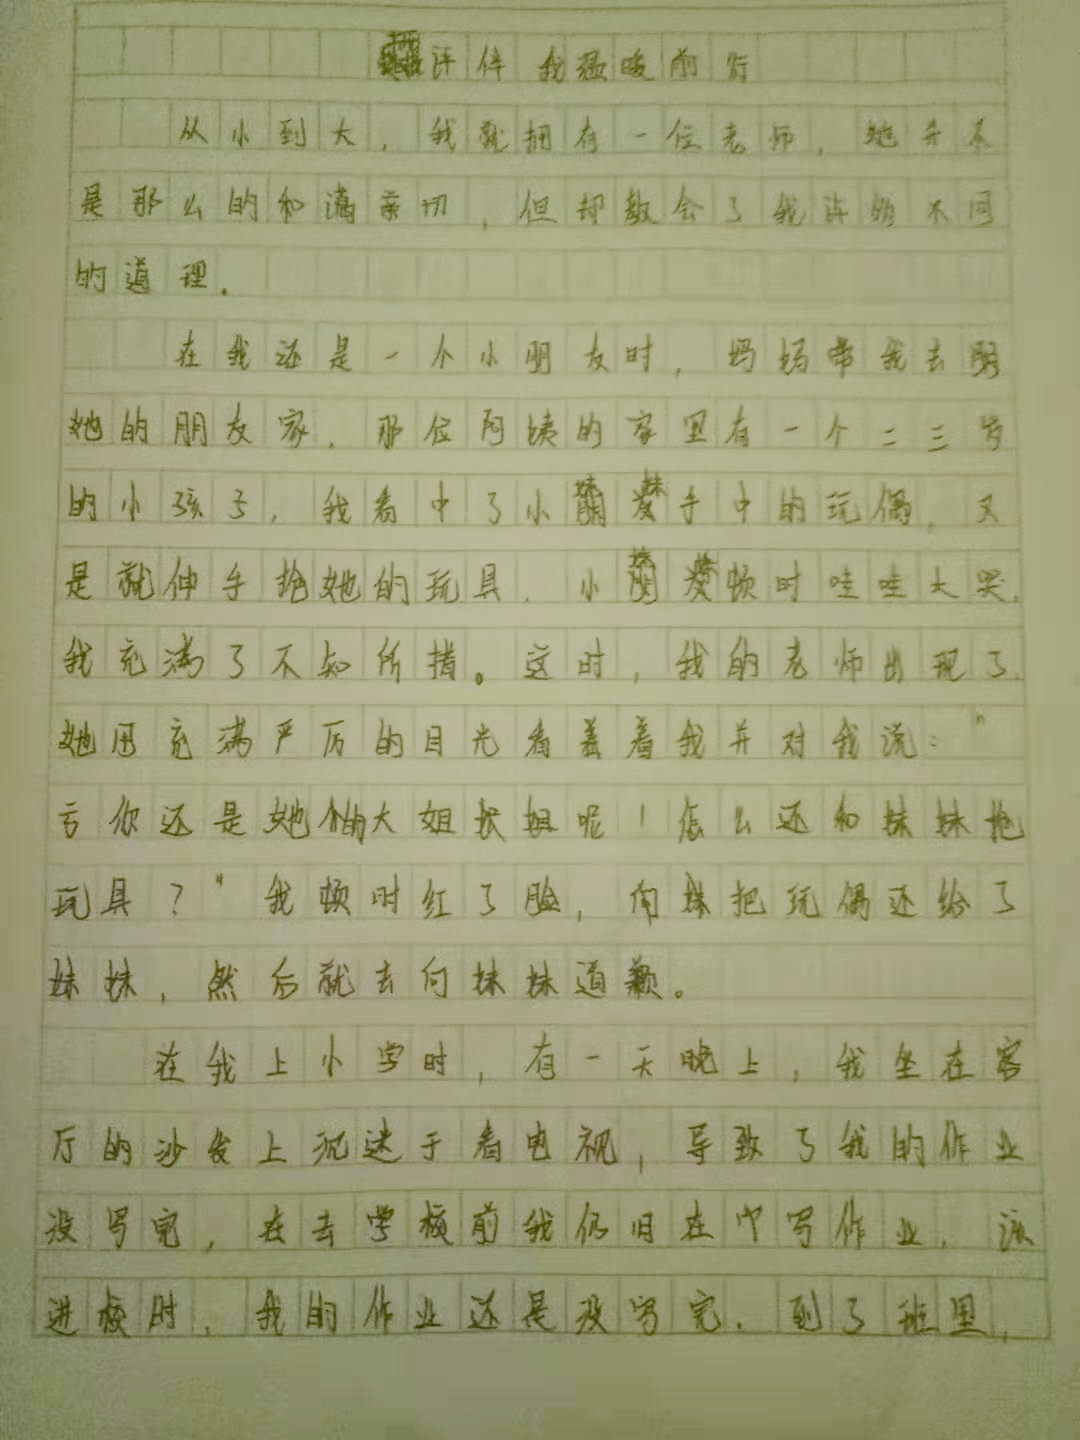 伴我温暖前行
从小到大，我就拥有一位老师，她并不
是那么的和蔼亲切，但却教会了我许多不同
的道理。
在我还是一个小朋友时，妈妈带我去
她的朋友家，那位阿姨的家里有一个二三岁
的小孩子，我看中了小妹妹手中的玩偶，又
是就伸手抢她的玩具，小妹妹顿时哇哇大哭，
我充满了不知所措。这时，我的老师出现了，
她用充满严厉的目光看着我并对我说："
亏你还是她的大姐姐呢！怎么还和妹妹抢
玩具？"我顿时红了脸，把玩偶还给了
妹妹，然后就去向妹妹道歉。
在我上小学时，有一天晚上，我坐在客
厅的沙发上沉迷于看电视，导致了我的作业
没写完，在去学校前我仍旧在写作业，该
进校时，我的作业还是没写完，到了班里，